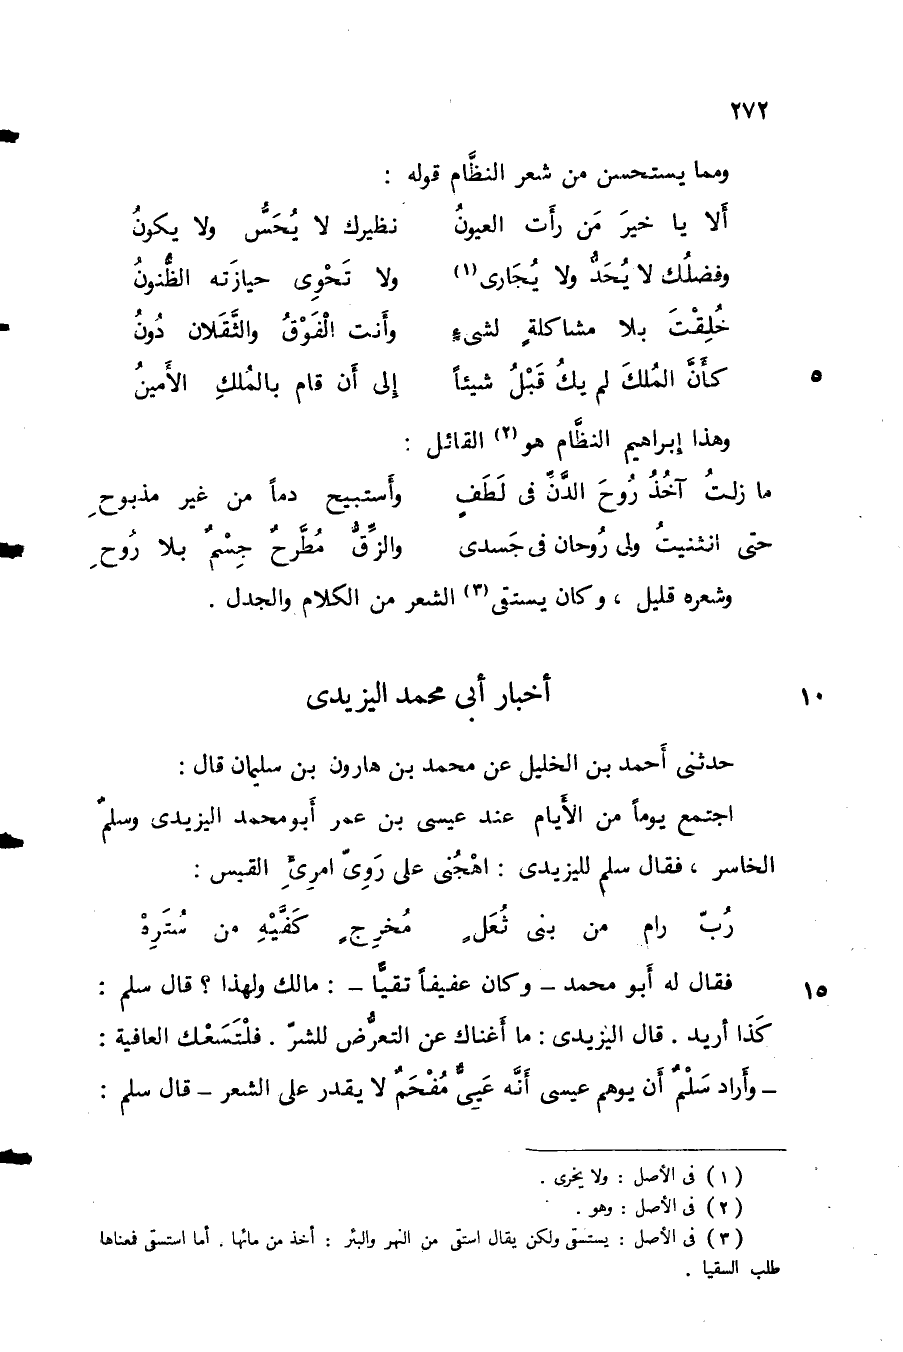 ٢٧٢
ومما يستحسن من شعر النظَّام قوله :
أَلا يا خيرَ مَن رأَت العيونُ نظيرك لا يُحَسُّ ولا يكونُ
وفضلُك لا يُحَدُّ ولا يُجَارى(١) ولا تَحْوِى حيازَته الظُّنونُ
خُلِقْتَ بلا مشاكلةٍ لشىءٍ وأَنت الْفَوْقُ والثَّقَلان دُونُ
كأَنَّ المُلكَ لم يكُ قَبْلُ شيئاً إلى أَن قام بالمُلكِ الأَمينُ ٥
وهذا إبراهيم النظَّام هو(٢) القائل :
ما زلتُ آخُذُ رُوحَ الدَّنِّ فى لَطَفٍ وأَستبيح دماً من غير مذبوحِ
حتى انثنيتُ ولى رُوحان فى جَسدى والزِّقُّ مُطَّرحٌ جِسْمٌ بلا رُوحِ
وشعره قليل ، وكان يستقى(٣) الشعر من الكلام والجدل .
أخبار أبى محمد اليزيدى ١٠
حدثنى أَحمد بن الخليل عن محمد بن هارون بن سليمان قال :
اجتمع يوماً من الأَيام عند عيسى بن عمر أَبومحمد اليزيدى وسلمٌ
الخاسر ، فقال سلم لليزيدى : اهْجُنى على رَوِىّ امرِئِ القيس :
رُبّ رام من بنى ثُعَلٍ مُخرِجٍ كَفَّيْهِ من سُتَرِهْ
فقال له أَبو محمد – وكان عفيفاً تقيًّا – : مالك ولهذا ؟ قال سلم : ١٥
كَذا أريد . قال اليزيدى : ما أَغناك عن التعرُّض للشرّ . فلْتَسَعْك العافية :
– وأَراد سَلْمٌ أَن يوهم عيسى أَنَّه عَيِىٌّ مُفْحَمٌ لا يقدر على الشعر – قال سلم :
( ١ ) فى الأصل : ولا يخرى .
( ٢ ) فى الأصل : وهو .
( ٣ ) فى الأصل : يستسقى ولكن يقال استقى من النهر والبئر : أخذ من مائها . أما استسقى فمعناها
طلب السقيا .